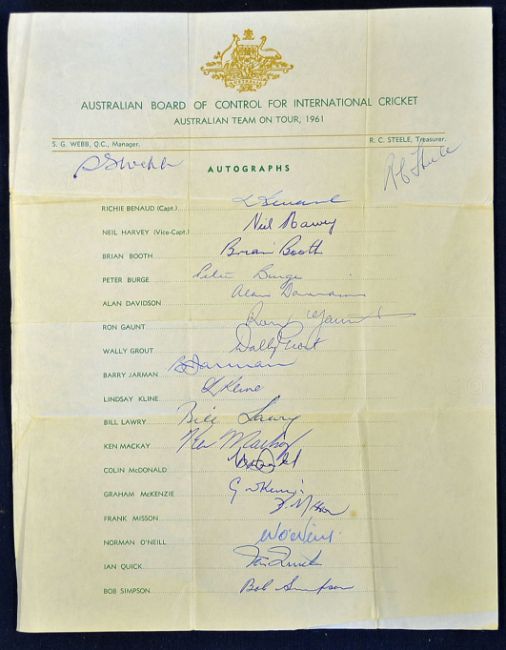 AUSTRALIA
AUSTRALIAN BOARD OF CONTROL FOR INTERNATIONAL CRICKET
AUSTRALIAN TEAM ON TOUR, 1961
S. G. WEBB, Q.C., Manager. R. C. STEELE, Treasurer.
S G Webb R C Steele
AUTOGRAPHS
RICHIE BENAUD (Capt.) R Benaud
NEIL HARVEY (Vice-Capt.) Neil Harvey
BRIAN BOOTH Brian Booth
PETER BURGE Peter Burge
ALAN DAVIDSON Alan Davidson
RON GAUNT Ron Gaunt
WALLY GROUT Wally Grout
BARRY JARMAN B Jarman
LINDSAY KLINE L Kline
BILL LAWRY Bill Lawry
KEN MACKAY Ken Mackay
COLIN McDONALD
GRAHAM McKENZIE G McKenzie
FRANK MISSON F Misson
NORMAN O'NEILL N O'Neill
IAN QUICK Ian Quick
BOB SIMPSON Bob Simpson